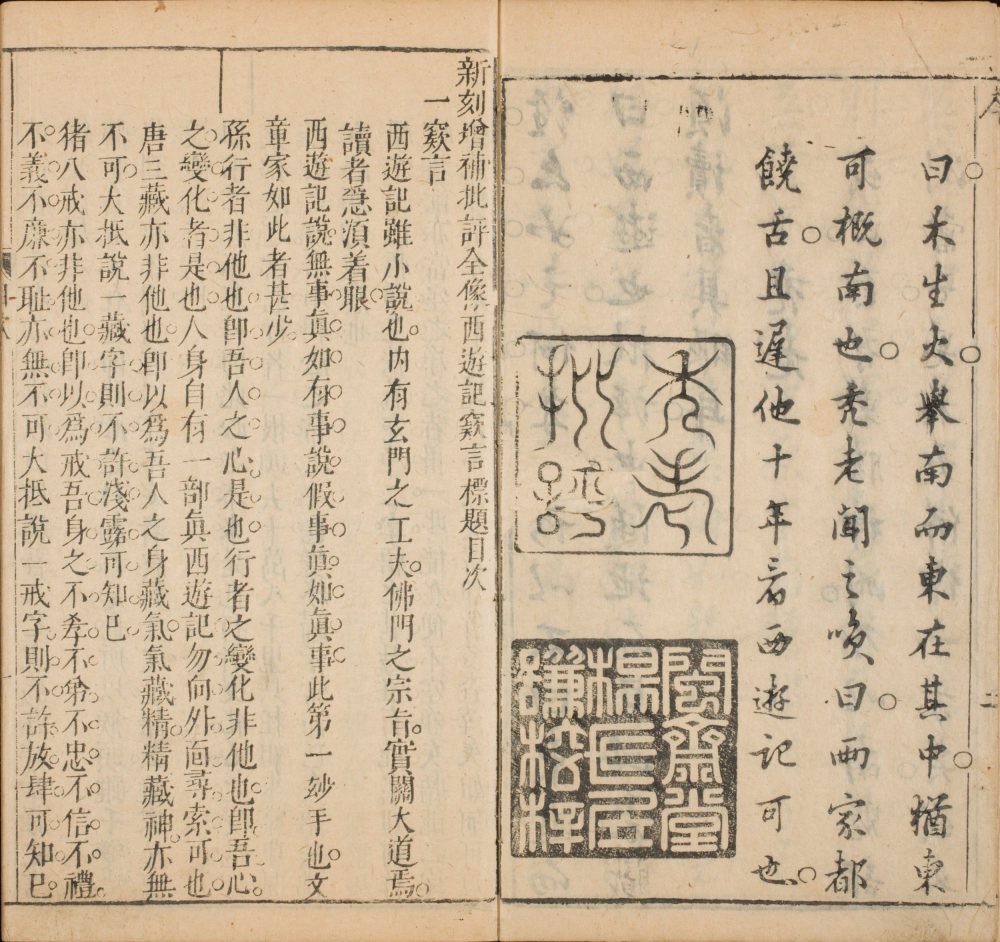 序
二
曰木生火舉南而東在其中猶東
可概南也禿老聞之喚曰兩家都
饒舌且遲他十年看西遊記可也
禿老
批評
閩齋堂
楊氏居
謙校梓
新刻增補批評全像西遊記竅言標題目次
一竅言
西遊記雖小說也內有玄門之工夫佛門之宗旨實關大道焉
讀者急須着眼
西遊記說無事眞如有事說假事眞如眞事此第一玅手也文
章家如此者甚少
孫行者非他也卽吾人之心是也行者之變化非他也卽吾心
之變化者是也人身自有一部眞西遊記勿向外面尋索可也
唐三藏亦非他也卽以爲吾人之身藏氣氣藏精精藏神亦無
不可大抵說一藏字則不許淺露可知已
猪八戒亦非他也卽以爲戒吾身之不孝不弟不忠不信不禮
不義不廉不耻亦無不可大抵說一戒字則不許放肆可知已